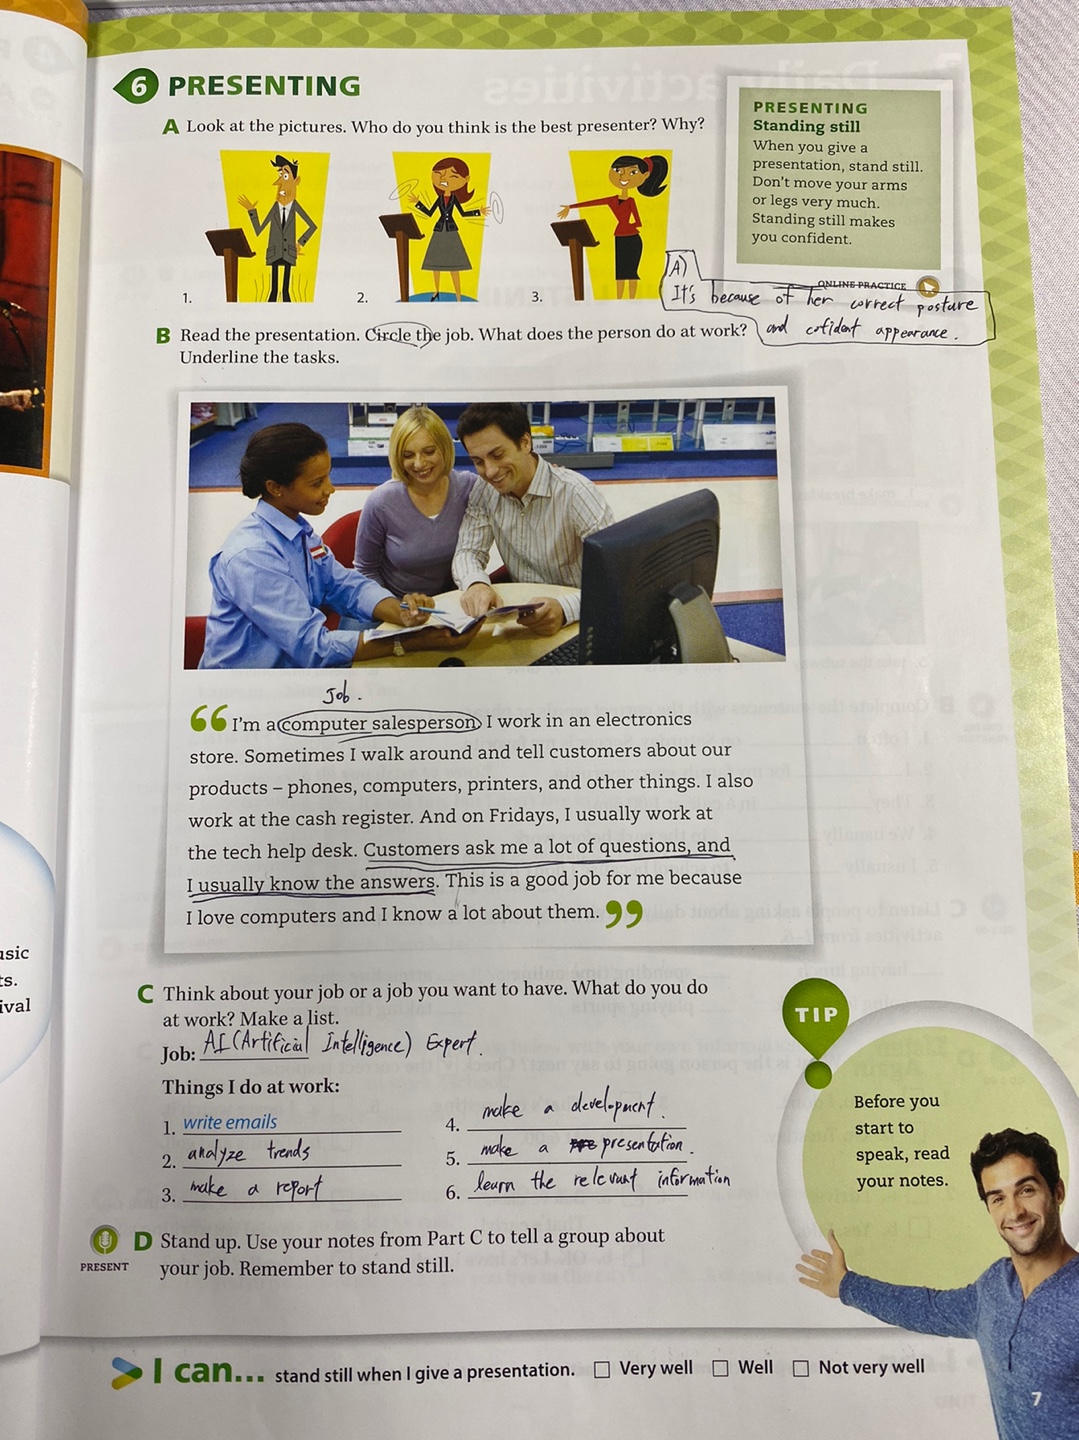 6 PRESENTING
A Look at the pictures. Who do you think is the best presenter? Why?
1.
2.
3.
PRESENTING
Standing still
When you give a
presentation, stand still.
Don't move your arms
or legs very much.
Standing still makes
you confident.
ONLINE PRACTICE
A)
It's because of her correct posture
and cofident appearance.
B Read the presentation. Circle the job. What does the person do at work?
Underline the tasks.
Job.
“I'm a computer salesperson. I work in an electronics
store. Sometimes I walk around and tell customers about our
products – phones, computers, printers, and other things. I also
work at the cash register. And on Fridays, I usually work at
the tech help desk. Customers ask me a lot of questions, and
I usually know the answers. This is a good job for me because
I love computers and I know a lot about them.”
C Think about your job or a job you want to have. What do you do
at work? Make a list.
Job: AI (Artificial Intelligence) Expert.
Things I do at work:
1. write emails
2. analyze trends
3. make a report
4. make a development.
5. make a presentation.
6. learn the relevant information
PRESENT
D Stand up. Use your notes from Part C to tell a group about
your job. Remember to stand still.
TIP
Before you
start to
speak, read
your notes.
I can... stand still when I give a presentation. Very well Well Not very well
7
usic
ts.
ival